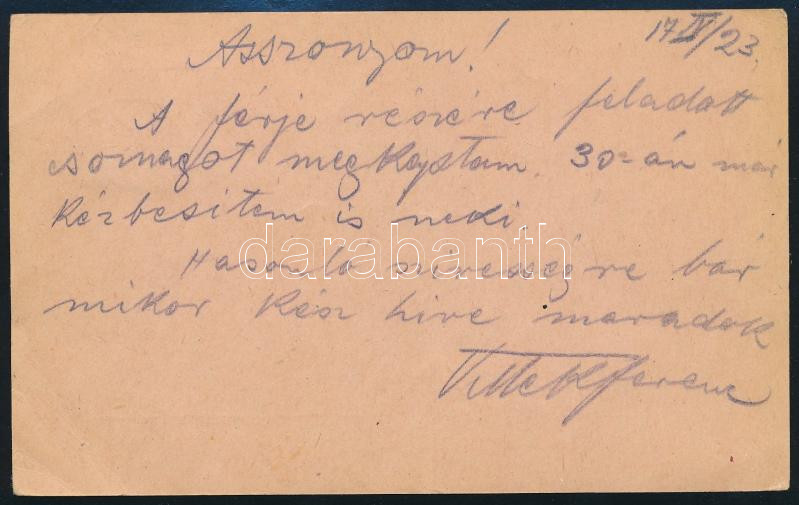 17 IV/23.
Asszonyom!
A férje részére feladott
csomagot megkaptam. 30-án már
kézbesitem is neki.
darabanth
Hasonló szivességre bár
mikor kész hive maradok
Ferenc